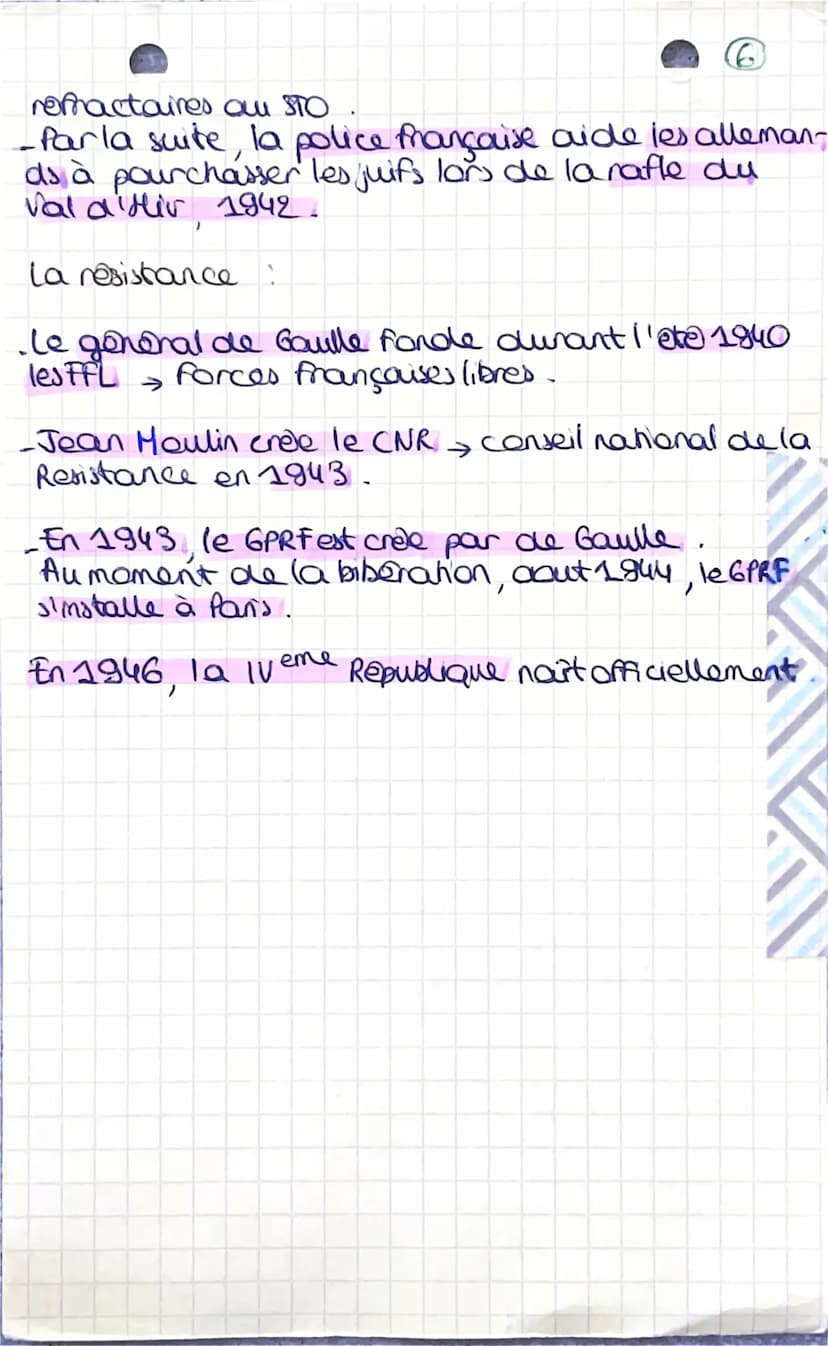 6
refractaires au STO.
- Par la suite, la police française aide les alleman-
ds à pourchasser les juifs lors de la rafle du
Val d'Hiv, 1942.
La résistance :
. Le général de Gaulle fonde durant l'été 1940
les FFL → forces françaises libres.
- Jean Moulin crée le CNR → conseil national de la
Resistance en 1943.
- En 1943, le GPRF est crée par de Gaulle.
Au moment de la bibération, aout 1944, le GPRF
s'installe à Paris.
En 1946, la IVeme République naît officiellement.